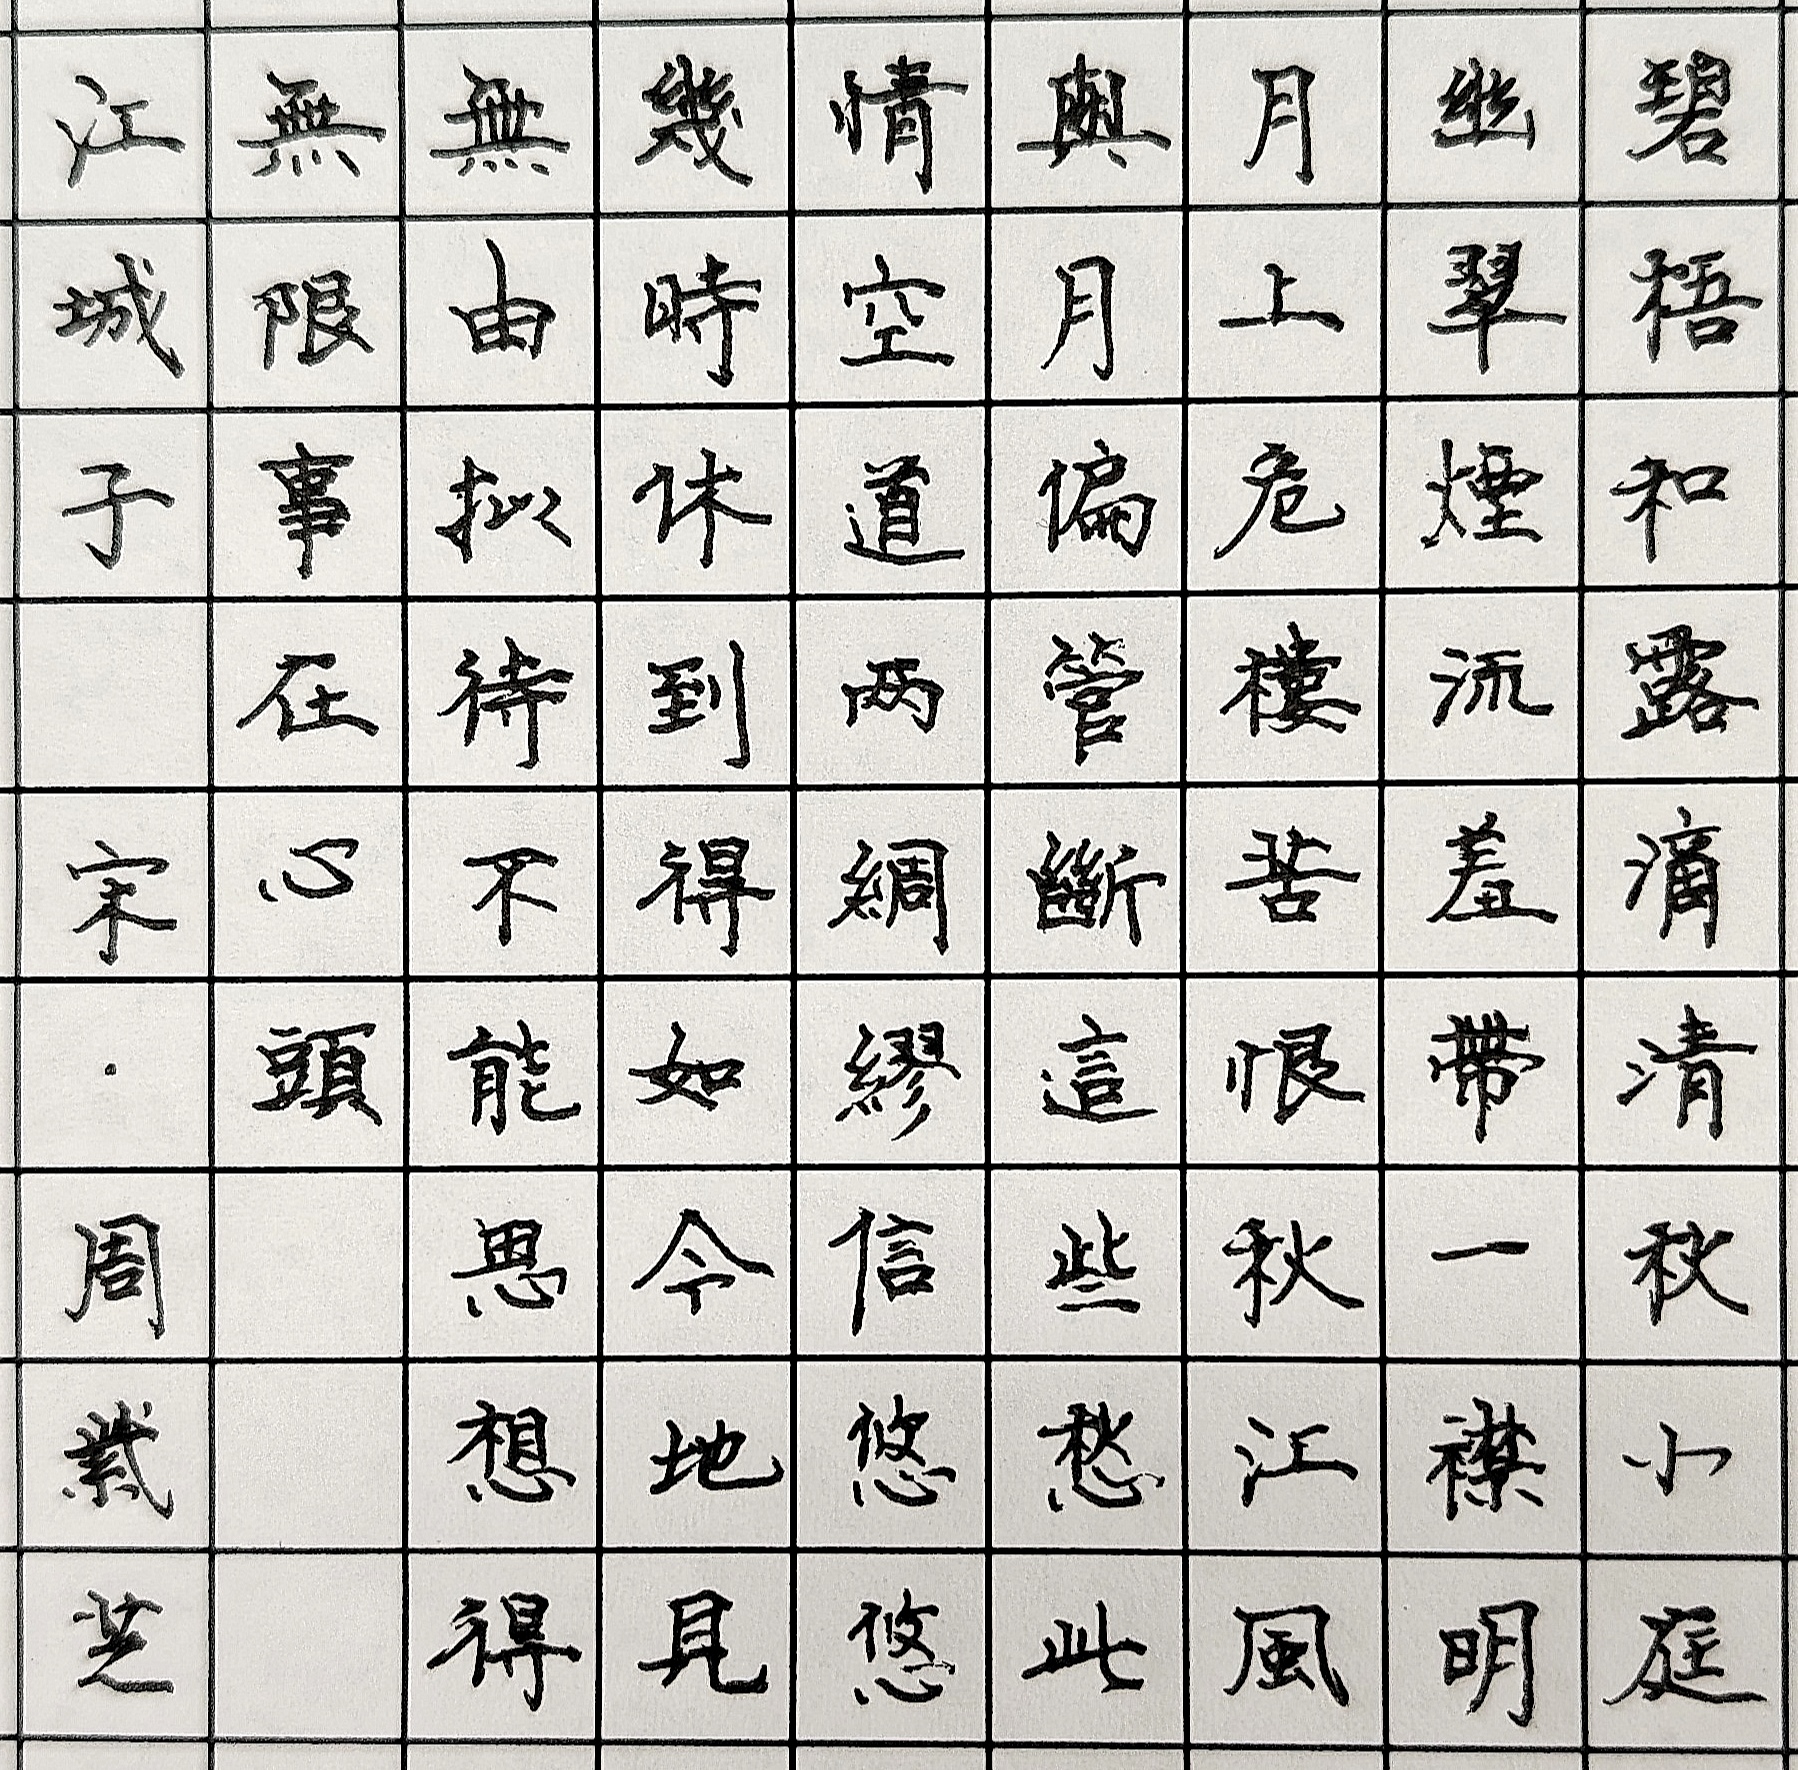 碧梧和露滴清秋小庭
幽翠煙流羞帶一襟明
月上危樓苦恨秋江風
與月偏管斷這些愁此
情空道两綢繆信悠悠
幾時休到得如今地見
無由拟待不能思想得
無限事在心頭
江城子 宋·周紫芝